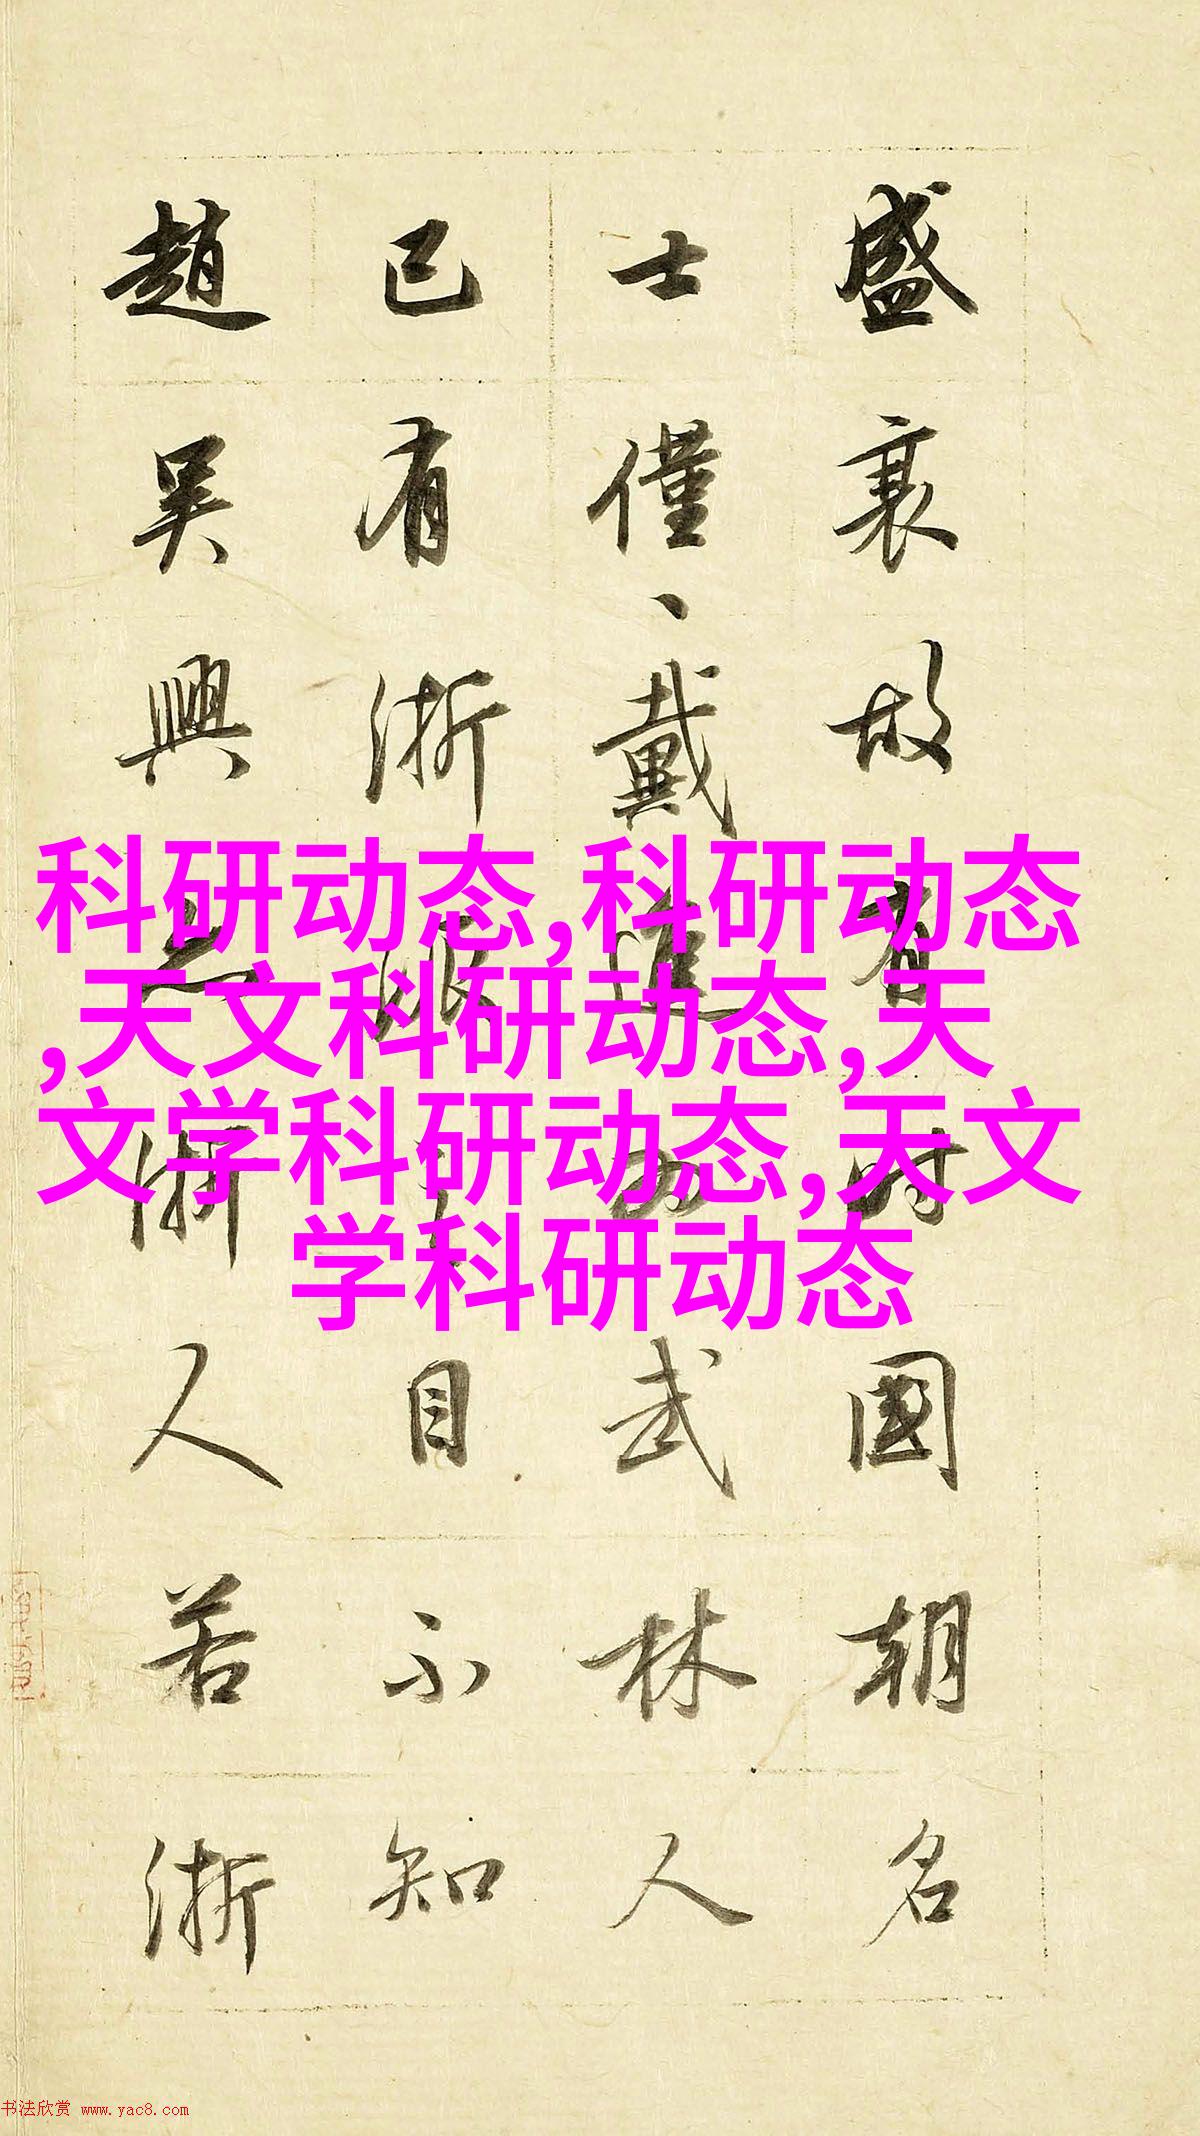 盛衰故有時國朝名
士僅、戴進為武林人
已有浙派目不知
趙吳興浙人若浙
科研动态,科研动态
,天文科研动态,天
文学科研动态,天文
学科研动态
书法欣赏 www.yac8.com